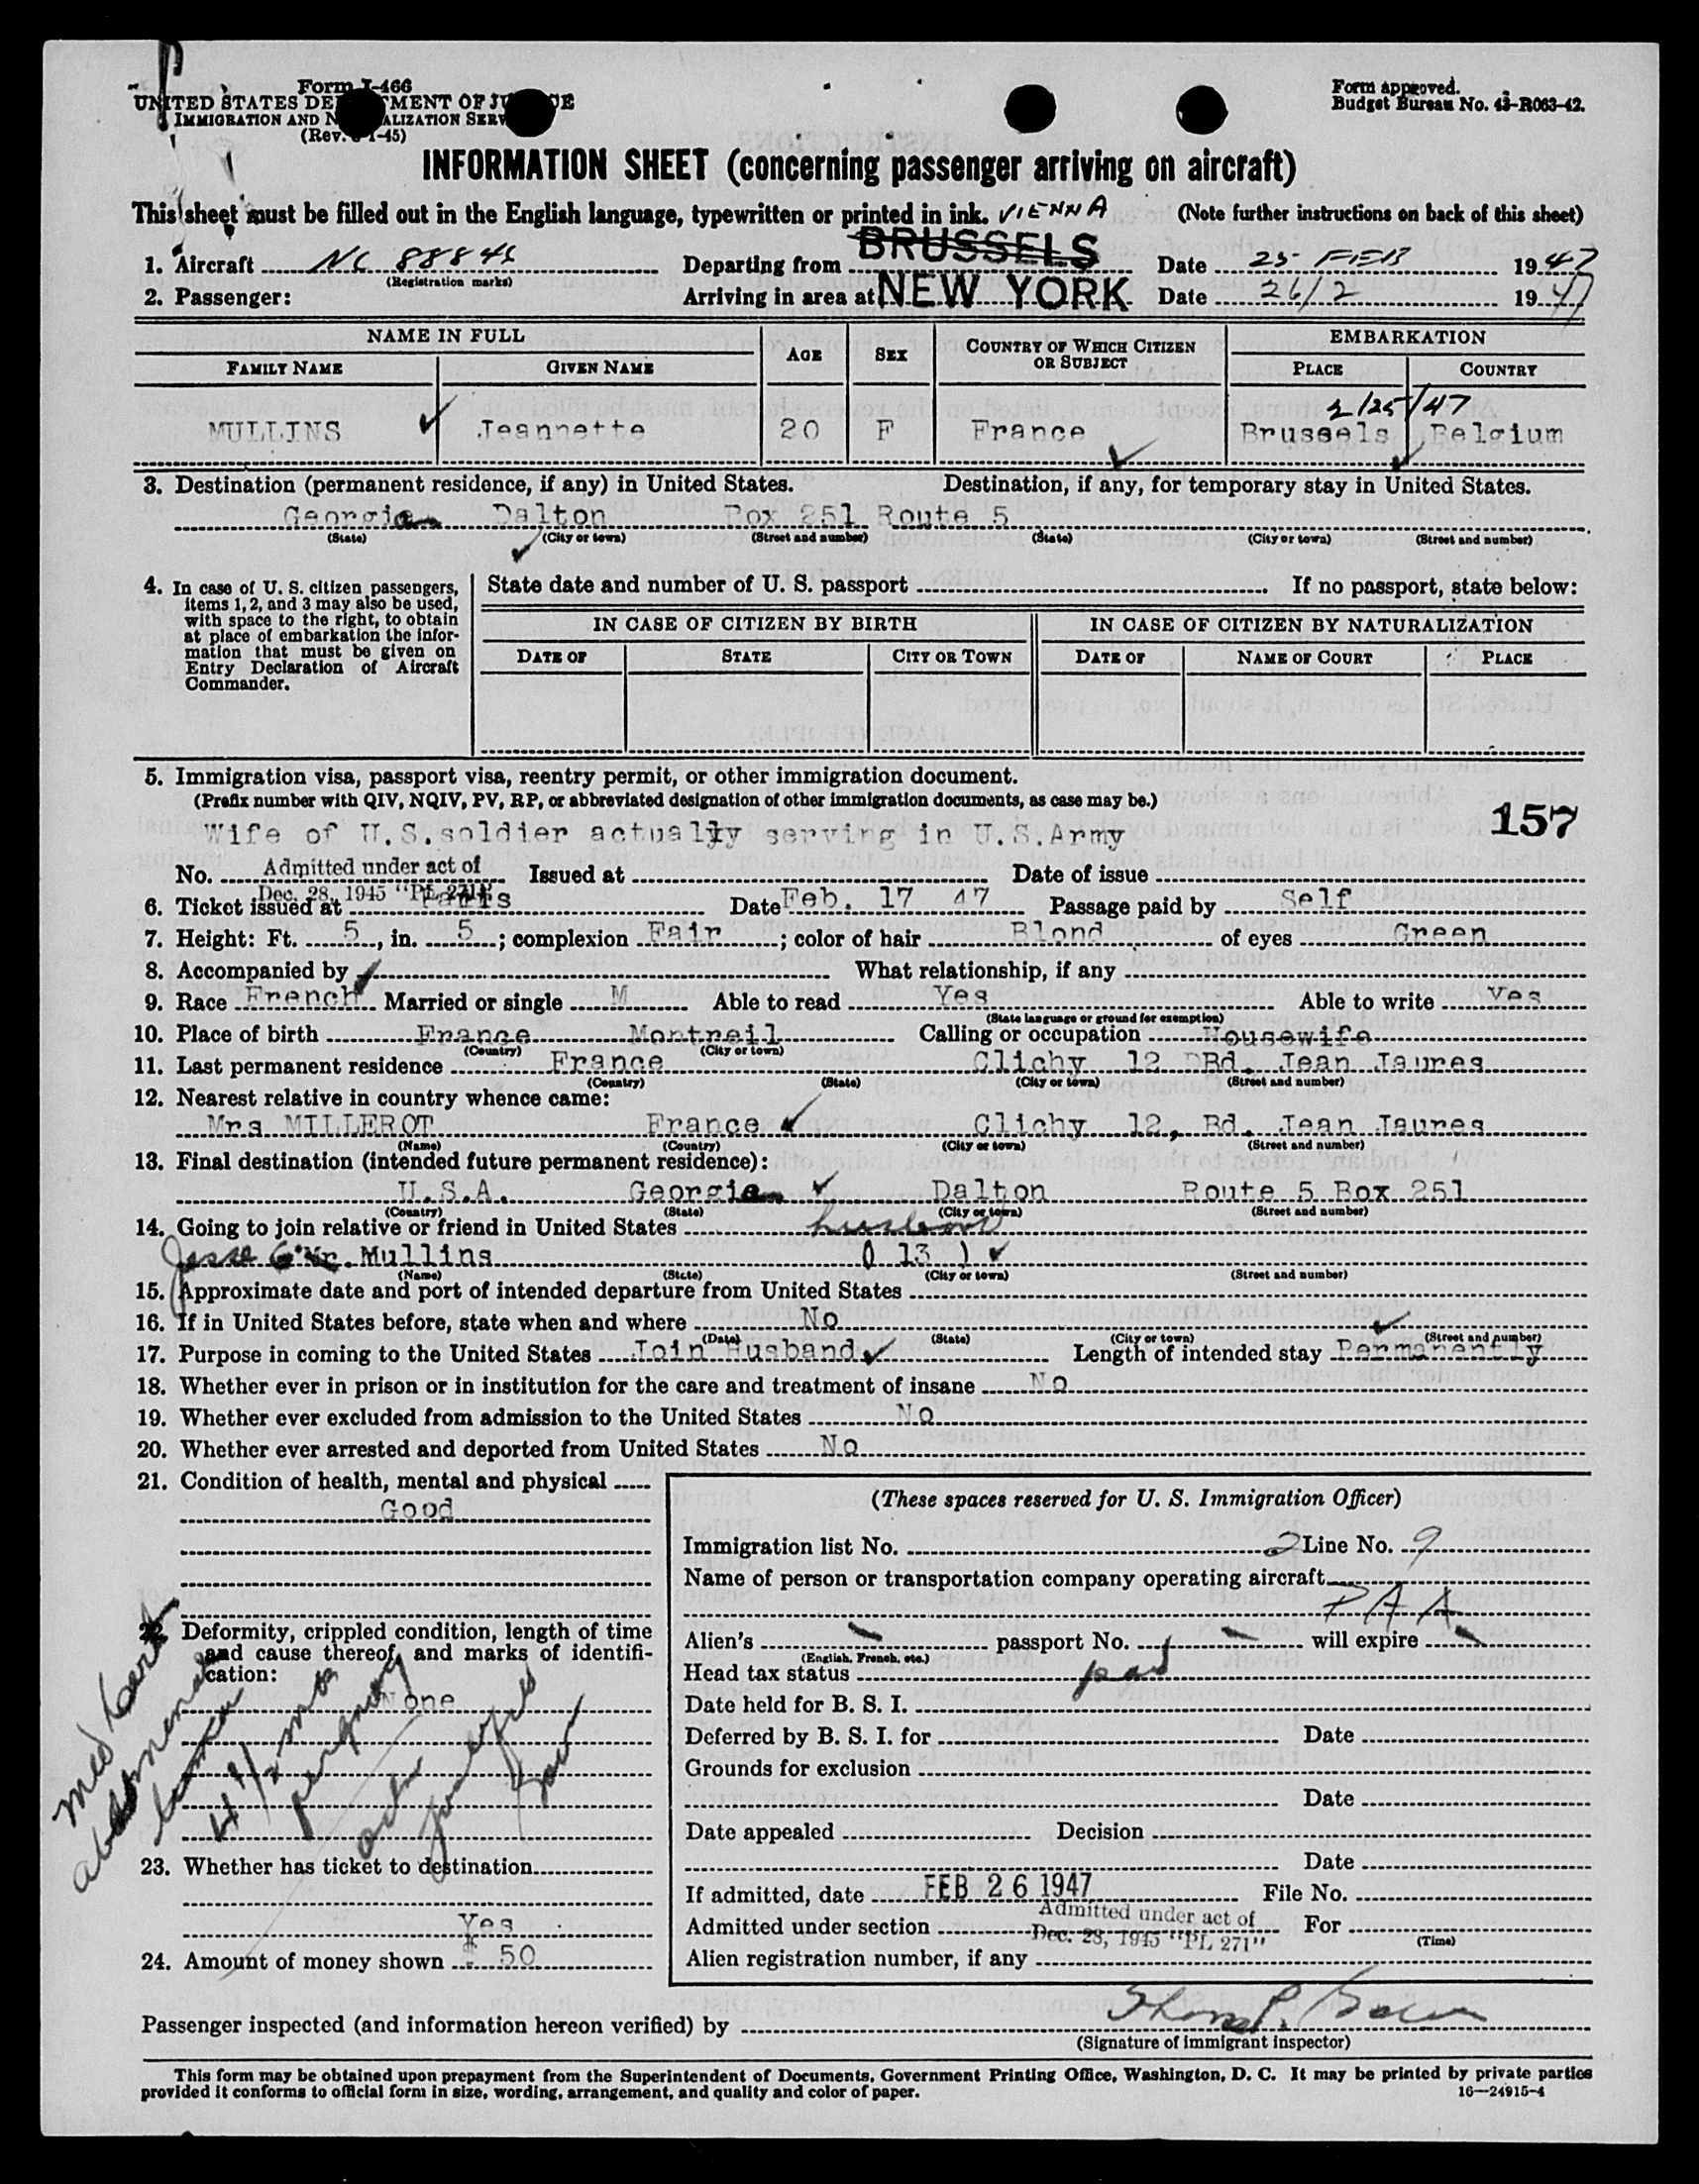 Form I-466
UNITED STATES DE MENT OF JU E
IMMIGRATION AND N ALIZATION SERV
(Rev. -1-45)
Form approved.
Budget Bureau No. 43-R063-42.
INFORMATION SHEET (concerning passenger arriving on aircraft)
This sheet must be filled out in the English language, typewritten or printed in ink. VIENNA (Note further instructions on back of this sheet)
1. Aircraft NC 88846 Departing from BRUSSELS Date 25 FEB 1947
(Registration marks)
2. Passenger: Arriving in area at NEW YORK Date 26/2 1947
NAME IN FULL AGE SEX COUNTRY OF WHICH CITIZEN OR SUBJECT EMBARKATION
FAMILY NAME GIVEN NAME PLACE COUNTRY
2/25/47
MULLINS Jeannette 20 F France Brussels Belgium
3. Destination (permanent residence, if any) in United States. Destination, if any, for temporary stay in United States.
Georgia Dalton Box 251 Route 5
(State) (City or town) (Street and number) (State) (City or town) (Street and number)
4. In case of U. S. citizen passengers, items 1, 2, and 3 may also be used, with space to the right, to obtain at place of embarkation the information that must be given on Entry Declaration of Aircraft Commander.
State date and number of U. S. passport If no passport, state below:
IN CASE OF CITIZEN BY BIRTH IN CASE OF CITIZEN BY NATURALIZATION
DATE OF STATE CITY OR TOWN DATE OF NAME OF COURT PLACE
5. Immigration visa, passport visa, reentry permit, or other immigration document.
(Prefix number with QIV, NQIV, PV, RP, or abbreviated designation of other immigration documents, as case may be.)
157
Wife of U.S.soldier actually serving in U.S.Army
No. Admitted under act of Issued at Date of issue
Dec. 28, 1945 "PL 271"
6. Ticket issued at Paris Date Feb. 17 47 Passage paid by Self
7. Height: Ft. 5, in. 5; complexion Fair; color of hair Blond of eyes Green
8. Accompanied by What relationship, if any
9. Race French Married or single M Able to read Yes Able to write Yes
(State language or ground for exemption)
10. Place of birth France Montreil Calling or occupation Housewife
(Country) (City or town)
11. Last permanent residence France Clichy 12 Bd. Jean Jaures
(Country) (State) (City or town) (Street and number)
12. Nearest relative in country whence came:
Mrs MILLEROT France Clichy 12, Bd. Jean Jaures
(Name) (Country) (City or town) (Street and number)
13. Final destination (intended future permanent residence):
U.S.A. Georgia Dalton Route 5 Box 251
(Country) (State) (City or town) (Street and number)
14. Going to join relative or friend in United States husband
Jesse G Mr. Mullins ( 13 )
(Name) (State) (City or town) (Street and number)
15. Approximate date and port of intended departure from United States
16. If in United States before, state when and where No
(Date) (State) (City or town) (Street and number)
17. Purpose in coming to the United States Join Husband Length of intended stay Permanently
18. Whether ever in prison or in institution for the care and treatment of insane No
19. Whether ever excluded from admission to the United States No
20. Whether ever arrested and deported from United States No
21. Condition of health, mental and physical
Good
22. Deformity, crippled condition, length of time and cause thereof, and marks of identification:
None
Med Cert
abdominal
4 1/2 mos
23. Whether has ticket to destination
Yes
24. Amount of money shown $ 50
(These spaces reserved for U. S. Immigration Officer)
Immigration list No. 2 Line No. 9
Name of person or transportation company operating aircraft
PAA
Alien's passport No. will expire
(English, French, etc.)
Head tax status paid
Date held for B. S. I.
Deferred by B. S. I. for Date
Grounds for exclusion
Date
Date appealed Decision
Date
If admitted, date FEB 26 1947 File No.
Admitted under section Admitted under act of For
Dec. 28, 1945 "PL 271" (Time)
Alien registration number, if any
Passenger inspected (and information hereon verified) by
(Signature of immigrant inspector)
This form may be obtained upon prepayment from the Superintendent of Documents, Government Printing Office, Washington, D. C. It may be printed by private parties
provided it conforms to official form in size, wording, arrangement, and quality and color of paper. 16—24915-4